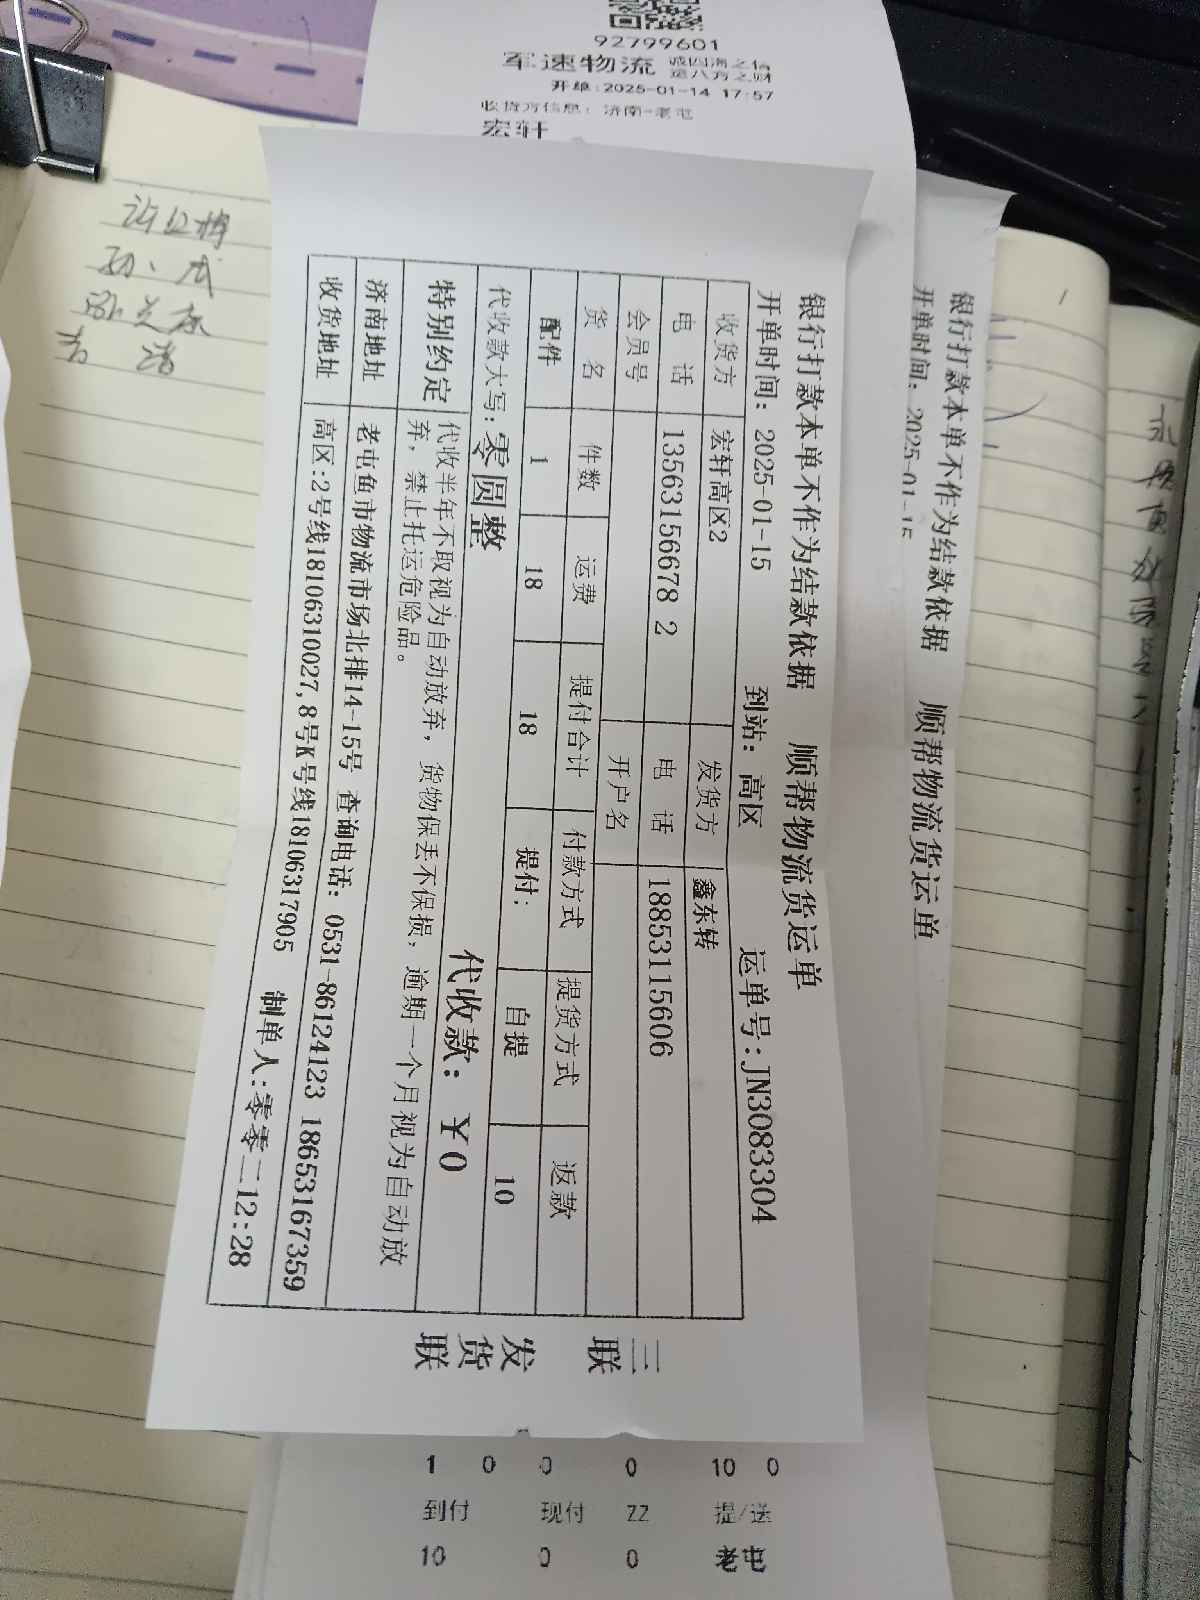 92799601
军速物流 诚四海之信
运八方之财
开单:2025-01-14 17:57
收货方信息: 济南-老屯
宏轩
银行打款本单不作为结款依据 顺帮物流货运单
开单时间: 2025-01-15
银行打款本单不作为结款依据 顺帮物流货运单
开单时间: 2025-01-15 到站: 高区 运单号:JN3083304
收货方 宏轩高区2 发货方 鑫东转
电 话 13563156678 2 电 话 18853115606
会员号 开户名
货 名 件数 运费 提付合计 付款方式 提货方式 返款
配件 1 18 18 提付: 自提 10
代收款大写: 零圆整 代收款: ￥0
特别约定 代收半年不取视为自动放弃, 货物保丢不保损, 逾期一个月视为自动放
弃, 禁止托运危险品。
济南地址 老屯鱼市物流市场北排14-15号 查询电话: 0531-86124123 18653167359
收货地址 高区:2号线18106310027,8号K号线18106317905 制单人:零零二12:28
三联
发货联
1 0 0 0 10 0
到付 现付 ZZ 提/送
10 0 0 老屯